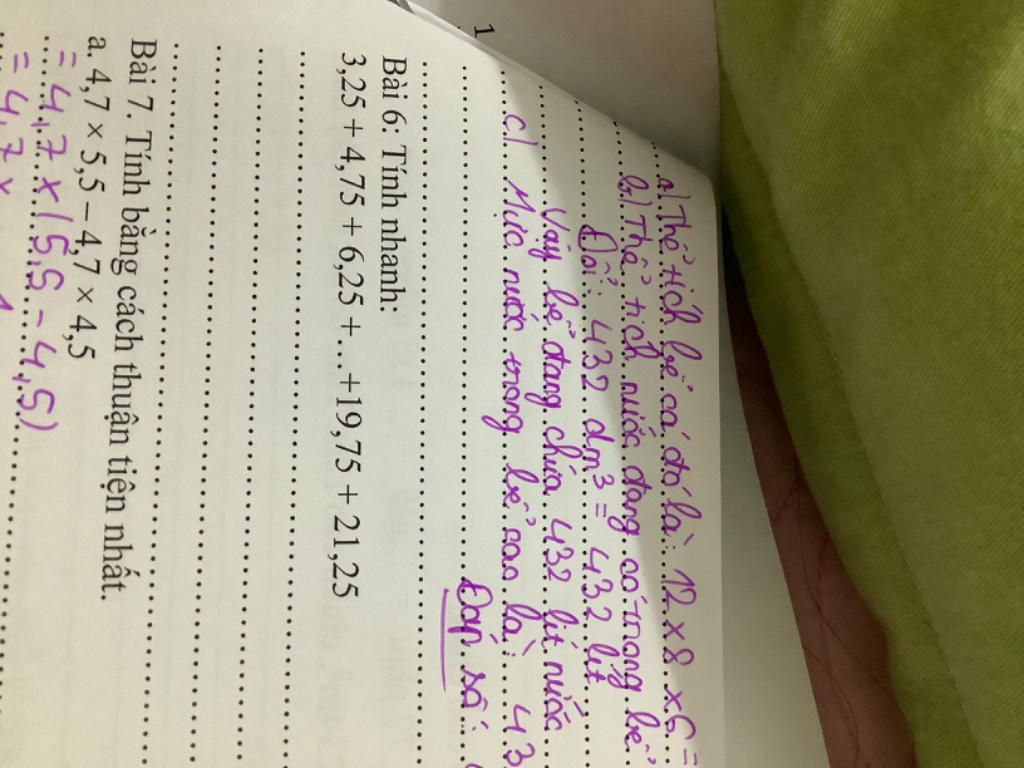 1
a) Thể tích bể cá đó là: 12 x 8 x 6 =
b) Thể tích nước đang có trong bể
Đổi: 432 dm³ = 432 lít
Vậy bể đang chứa 432 lít nước
c) Mực nước trong bể cao là: 43
Đáp số:
Bài 6: Tính nhanh:
3,25 + 4,75 + 6,25 + ...+19,75 + 21,25
Bài 7. Tính bằng cách thuận tiện nhất.
a. 4,7 × 5,5 – 4,7 × 4,5
= 4,7 x (5,5 - 4,5)
= 4,7 x